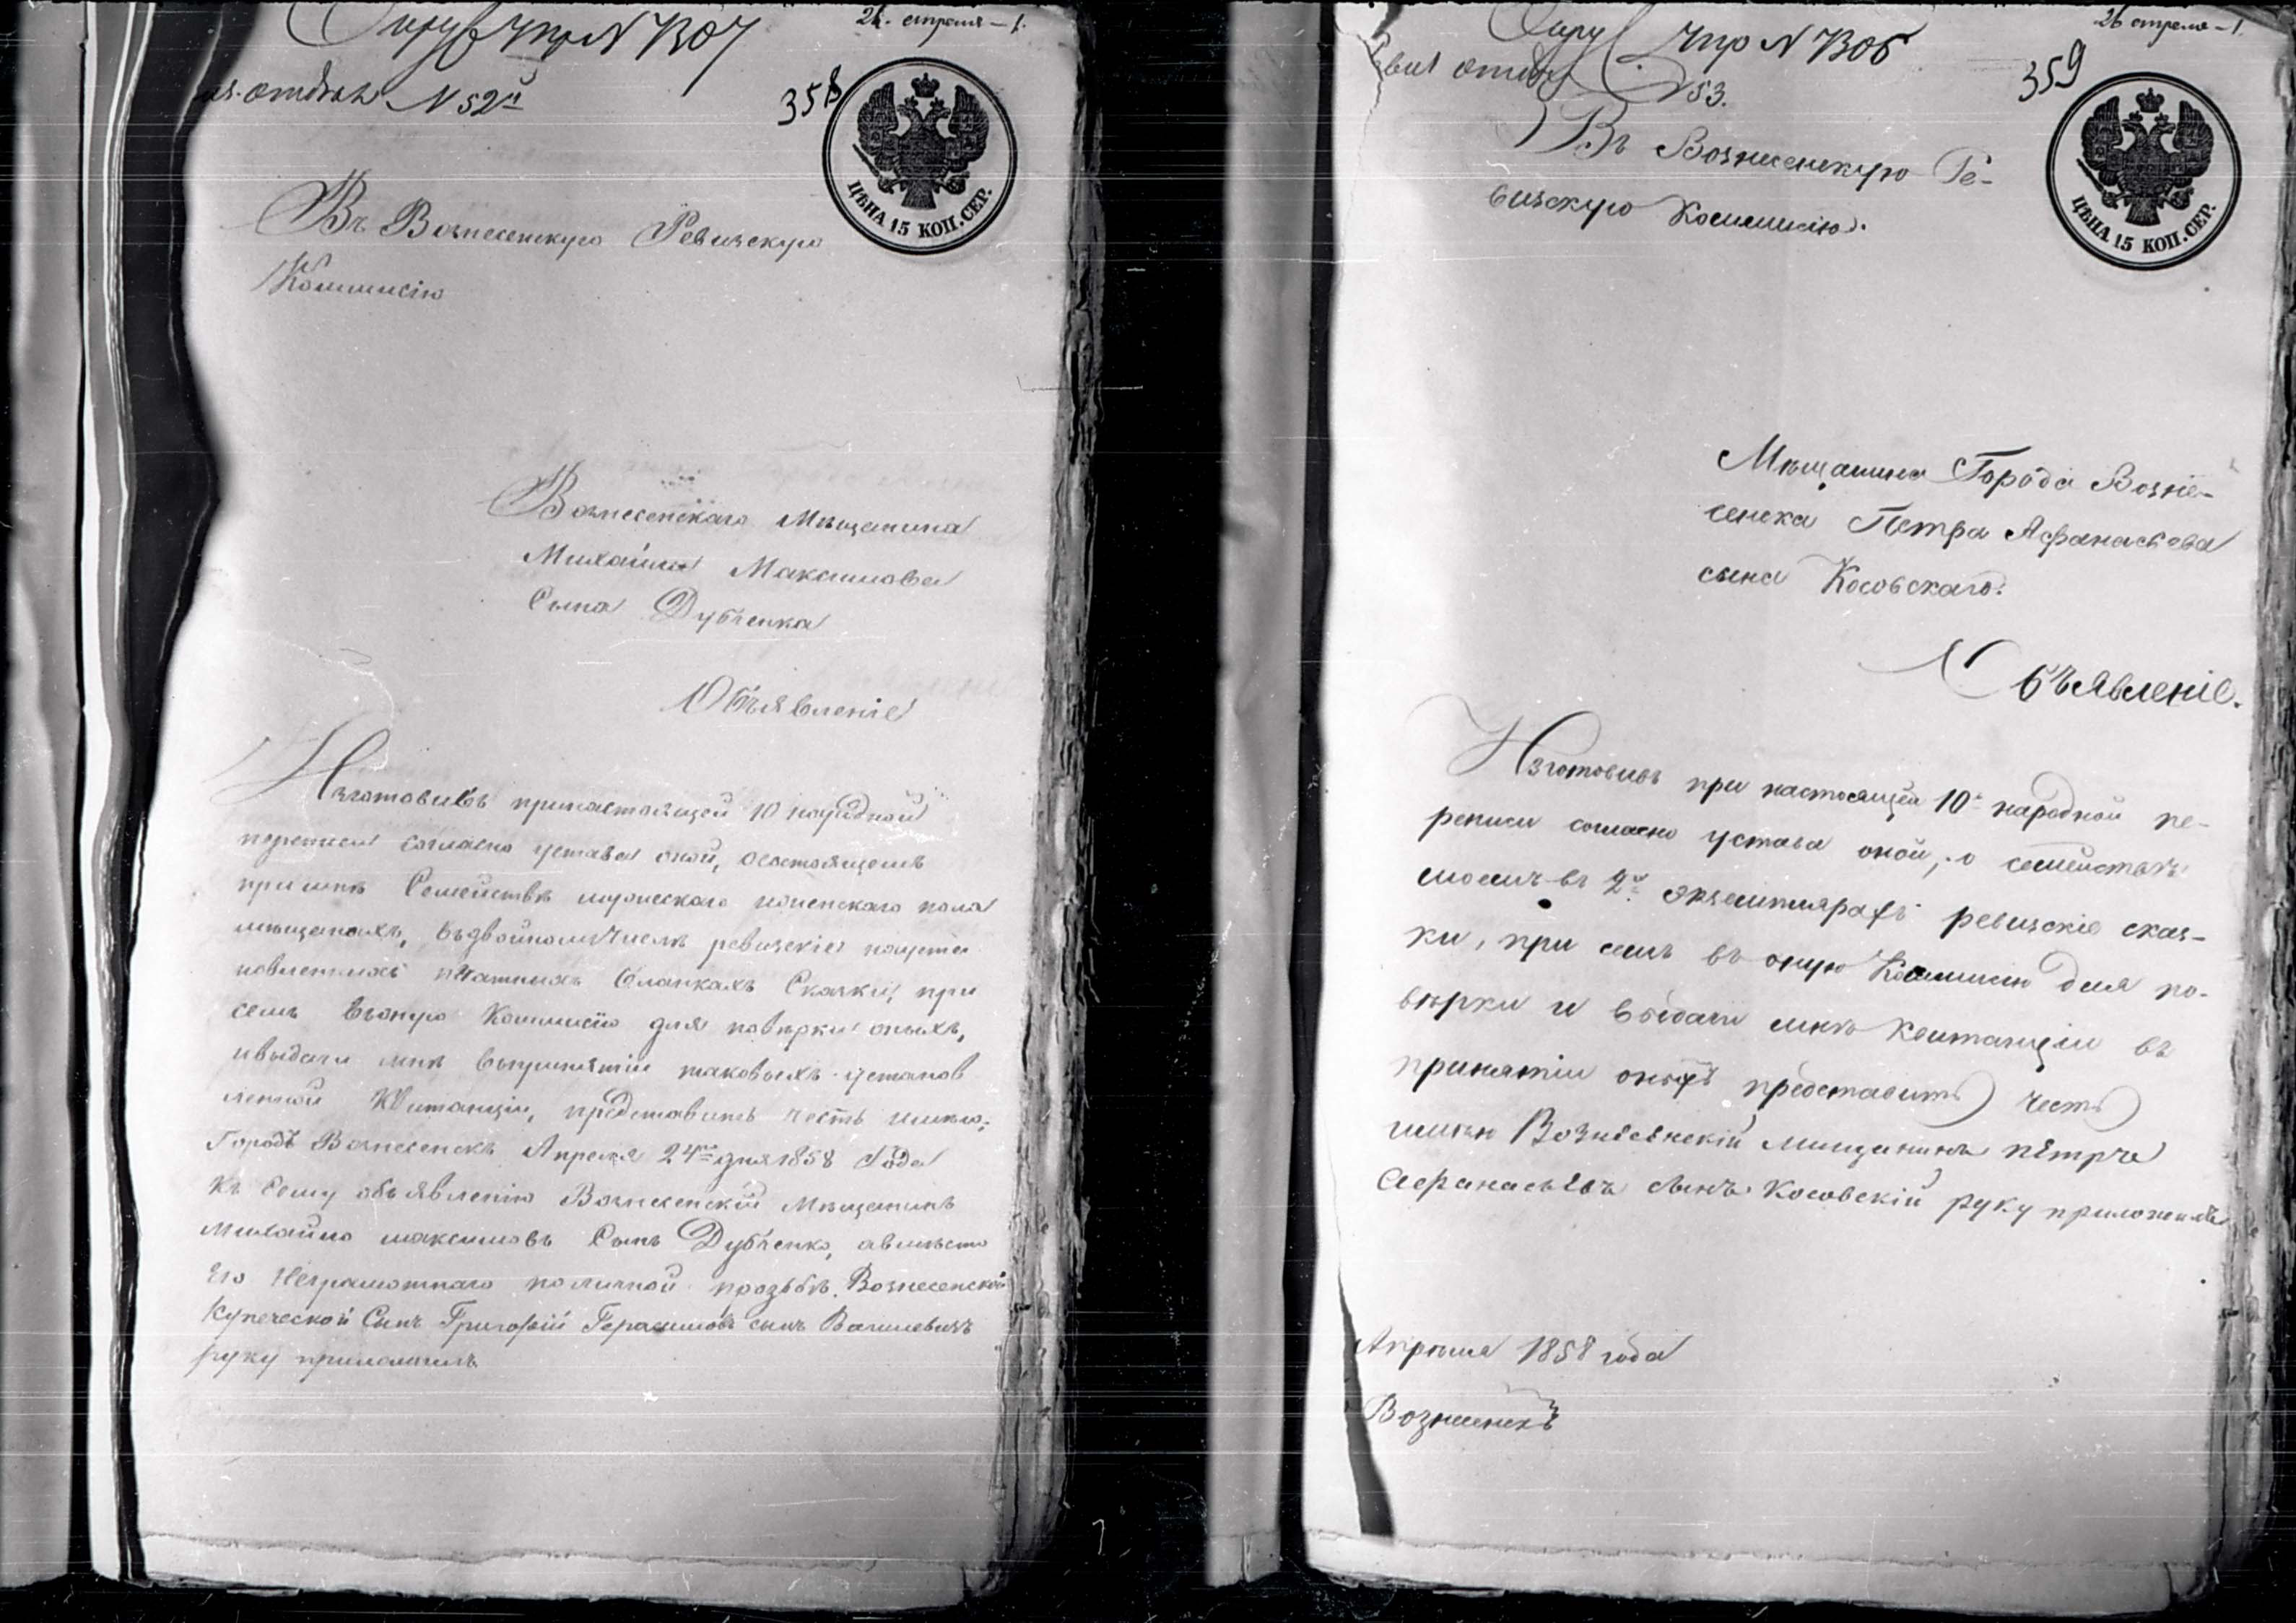 26 апреля — 1.
№ 1307
отдел № 52й
358
ЦѢНА 15 КОП. СЕР.
Въ Вознесенскую Ревизскую
Коммисію
Вознесенскаго Мѣщанина
Михайла Максимова
Сына Дубченка
Объявленіе
Изготовивъ принастоящей 10 народной
переписи согласно устава оной, осостоящемъ
примнѣ Семействѣ мужескаго иженскаго пола
мѣщанахъ, въдвойномъ числѣ ревизскіе науста
новленныхъ печатныхъ бланкахъ Сказки, при
семъ въоную Коммисію для повѣрки оныхъ,
ивыдачи мнѣ въпринятіи таковыхъ установ
ленной Квитанціи, представить честь имѣю:
Городъ Вознесенскъ Апреля 24го дня 1858 Года
Къ Сему объявленію Вознесенскій Мѣщанинъ
Михайло максимовъ Сынъ Дубченко, авмѣсто
Его Неграмотнаго поличной прозьбѣ Вознесенской
Купеческой Сынъ Григорій Герасимовъ сынъ
руку приложилъ
26 апреля — 1.
Упр № 1306
№ 53.
359
ЦѢНА 15 КОП. СЕР.
Въ Вознесенскую Ре-
визскую Коммисію.
Мѣщанина Города Возне-
сенска Петра Афанасьева
сына Косовскаго.
Объявленіе.
Изготовивъ при настоящей 10й народной пе-
реписи согласно устава оной, о семействѣ
моемъ въ 2х экземплярахъ ревизскіе сказ-
ки, при семъ въ оную Коммисію для по-
вѣрки и выдачи мнѣ квитанціи въ
принятіи оныхъ представить честь
имѣю Вознесенскій мищанинъ пѣтръ
Афанасьевъ сынъ Косовскій руку приложилъ
Апрѣля 1858 года
Вознесенскъ